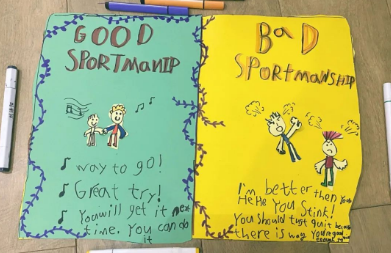 GOOD
SPORTMANIP
way to go!
Great try!
You will get it next
time. You can do
it
BaD
SPORtMANSHIP
I'm better then You
HeHe You Stink!
You should Just quit because
there is way